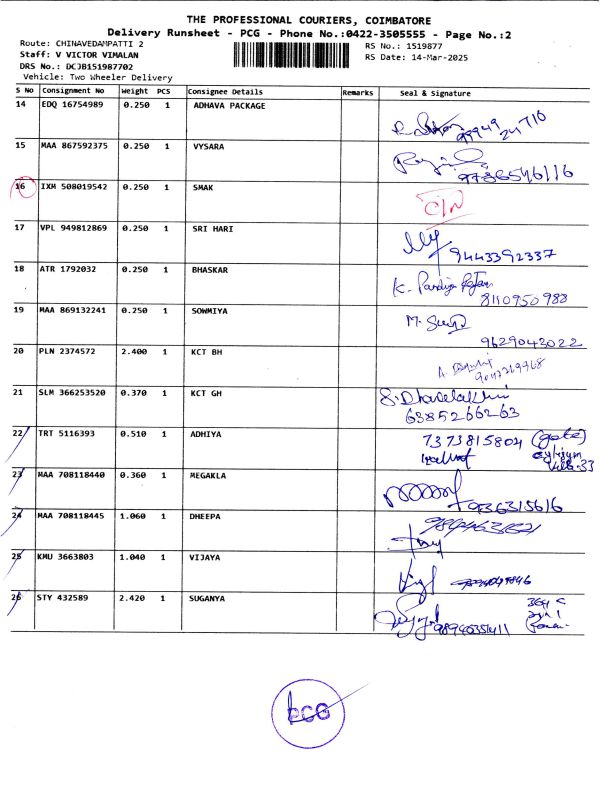 THE PROFESSIONAL COURIERS, COIMBATORE
Delivery Runsheet - PCG - Phone No.:0422-3505555 - Page No.:2
Route: CHINAVEDAMPATTI 2
RS No.: 1519877
Staff: V VICTOR VIMALAN
RS Date: 14-Mar-2025
DRS No.: DCJB151987702
Vehicle: Two Wheeler Delivery
S No Consignment No Weight PCS Consignee Details Remarks Seal & Signature
14 EDQ 16754989 0.250 1 ADHAVA PACKAGE
99949 24710
15 MAA 867592375 0.250 1 VYSARA
9786546116
16 IXM 508019542 0.250 1 SMAK
C/N
17 VPL 949812869 0.250 1 SRI HARI
9443392337
18 ATR 1792032 0.250 1 BHASKAR
K. Pandiya Rajan
8110950988
19 MAA 869132241 0.250 1 SOWMIYA
9629043022
20 PLN 2374572 2.400 1 KCT BH
21 SLM 366253520 0.370 1 KCT GH
S. Dhanelakshmi
6385266263
22 TRT 5116393 0.510 1 ADHIYA
7373815804 (gate)
23 MAA 708118440 0.360 1 MEGAKLA
936315616
24 MAA 708118445 1.060 1 DHEEPA
25 KMU 3663803 1.040 1 VIJAYA
26 STY 432589 2.420 1 SUGANYA
98940351411
PCG